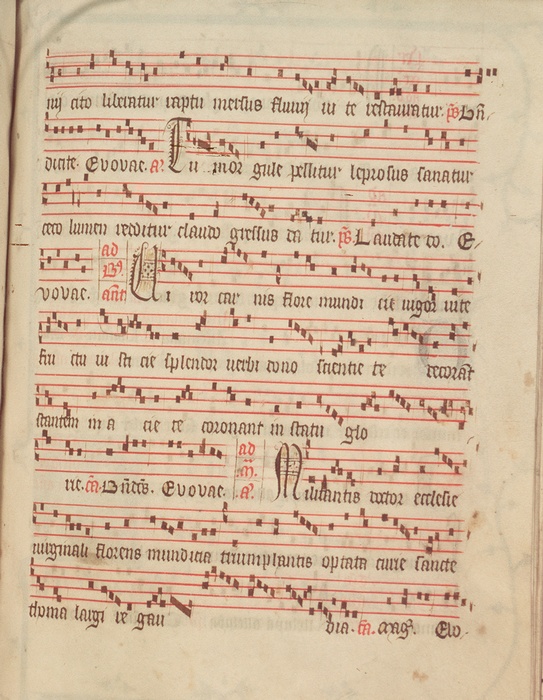 cito liberatur raptu mersus fluuij in te restauratur. ps Bn
dicite. Evovae. a. Tu mor gule pellitur leprosus sanatur
ceco lumen redditur claudo gressus da tur. ps. Laudate do. E
vovae. ad Bs. ant Vi ror car nis flore mundi cie uigor uite
fru ctu iu sti cie splendor uerbi dono scientie te decorat
stantem in a cie te coronant in statu glo
rie. ca. Bndcs. Evovae. ad m. a. Militantis doctor ecclesie
uirginali florens mundicia triumphantis optata curie sancte
thoma largi re gau dia. ca. mag. Evo.